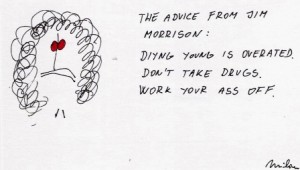 THE ADVICE FROM JIM
MORRISON:
DIYNG YOUNG IS OVERATED.
DON'T TAKE DRUGS.
WORK YOUR ASS OFF.